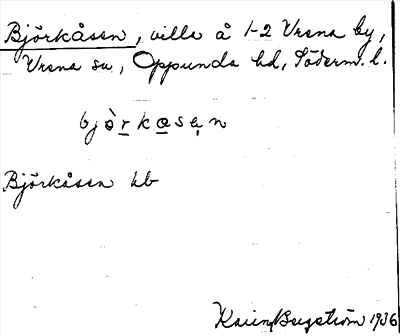 Björkåsen, villa å 1-2 Vrena by,
Vrena sn, Oppunda hd, Söderm. l.
bjò̱rka̱sạn
Björkåsen hb
Karin Bergström 1936